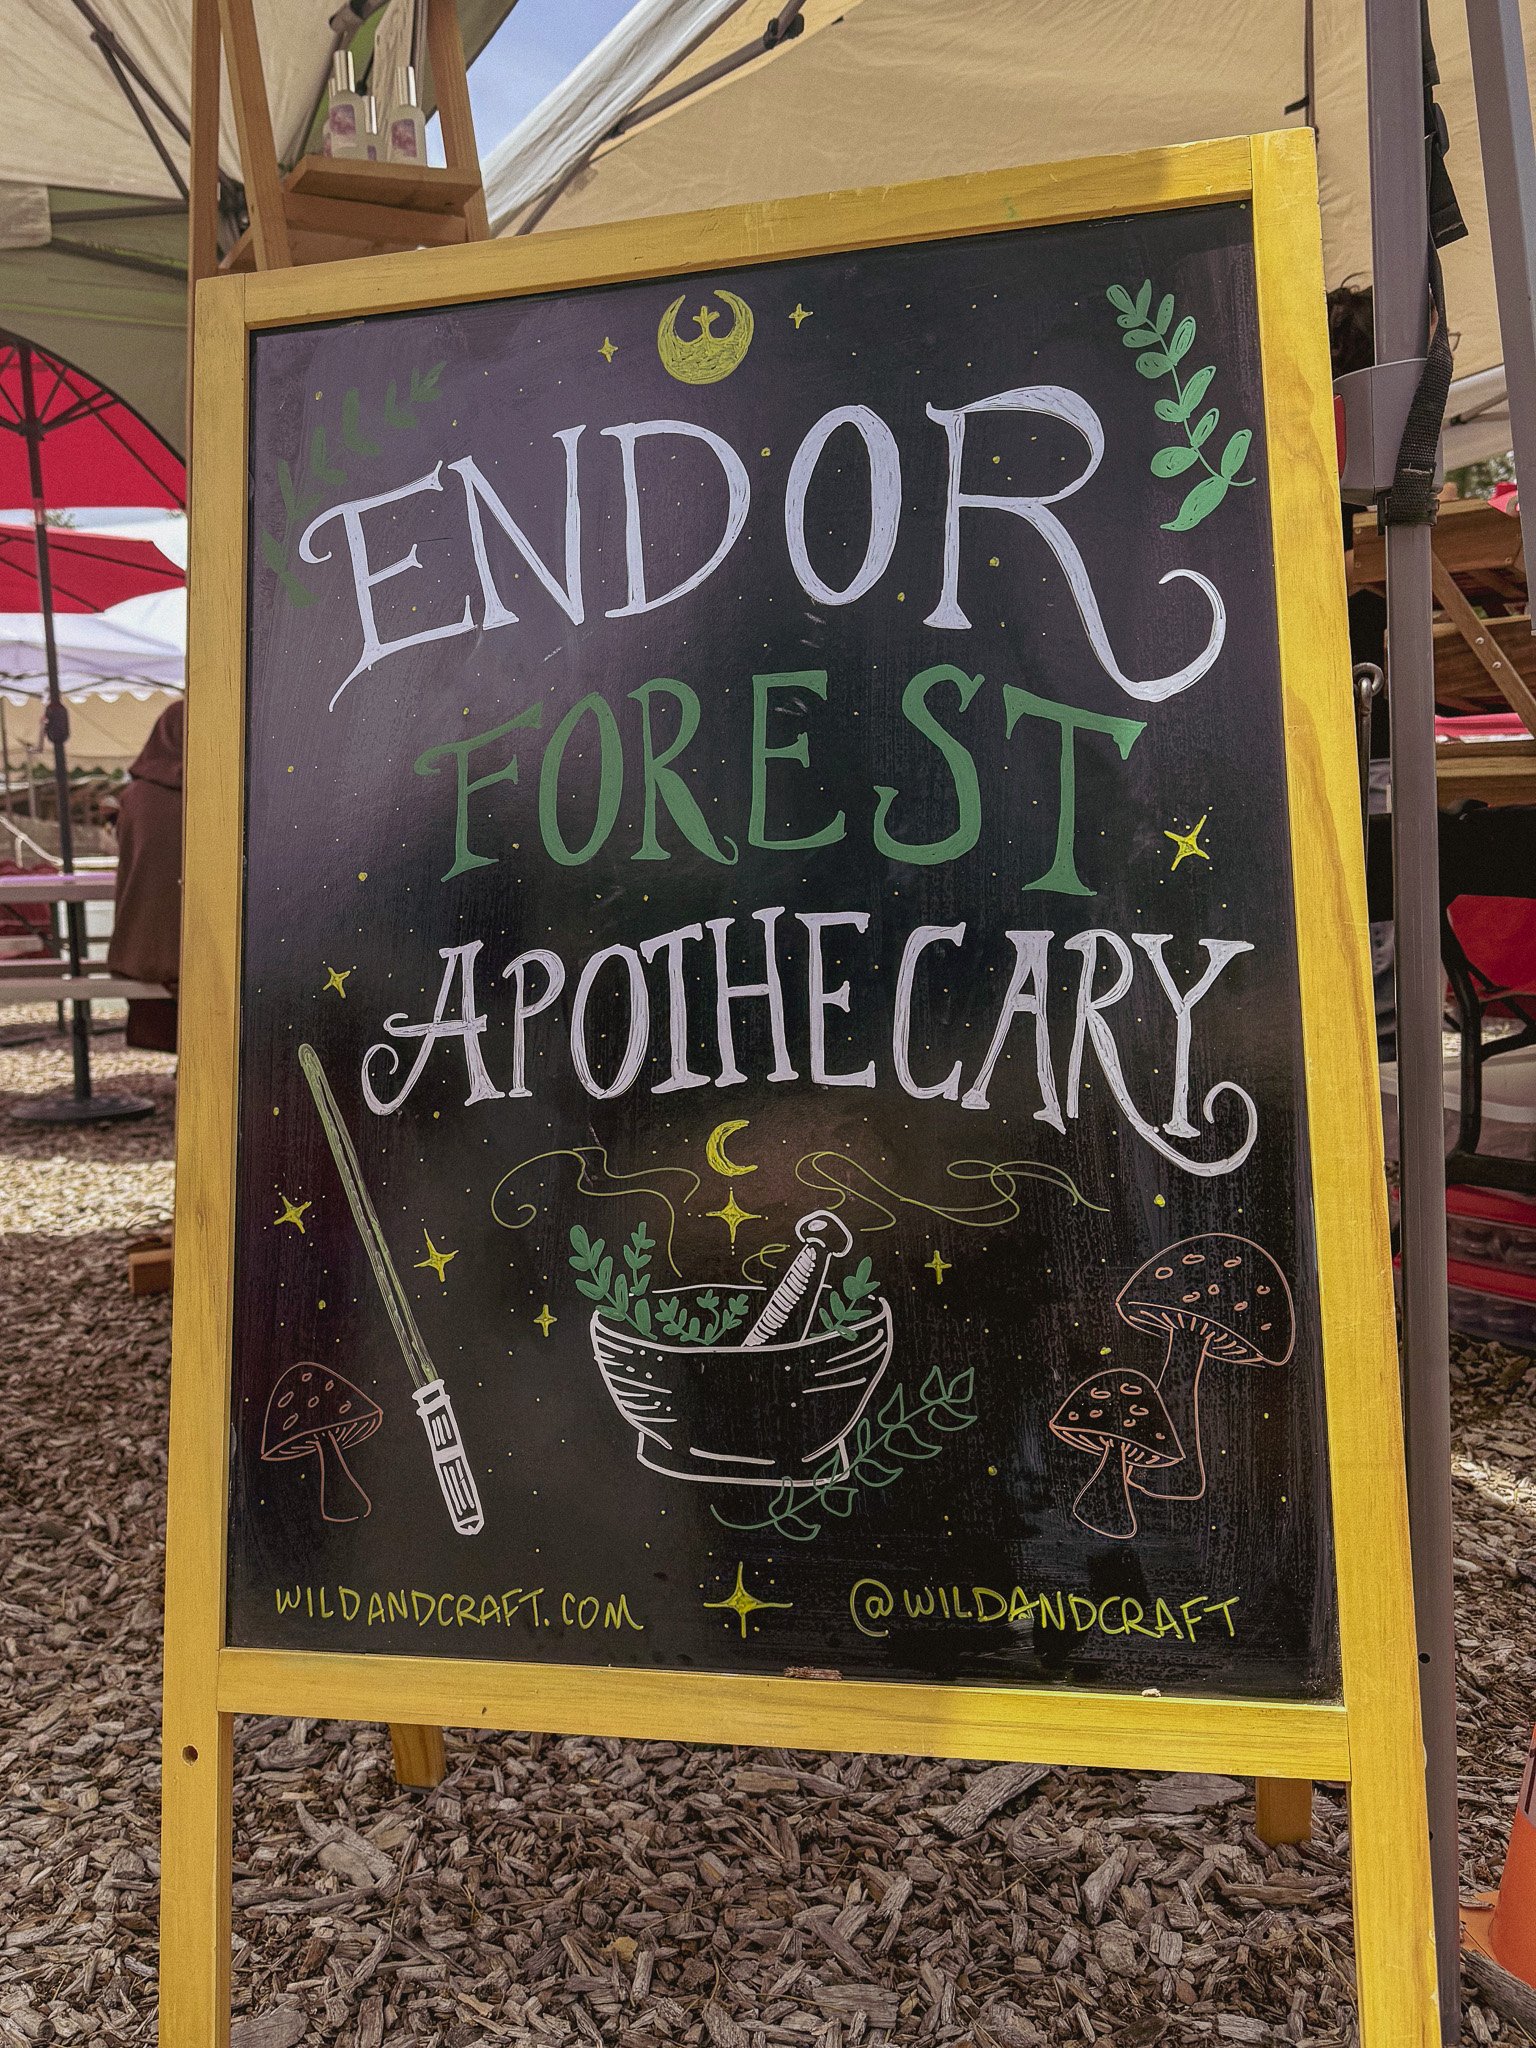 ENDOR
FOREST
APOTHECARY
WILDANDCRAFT.COM
@WILDANDCRAFT